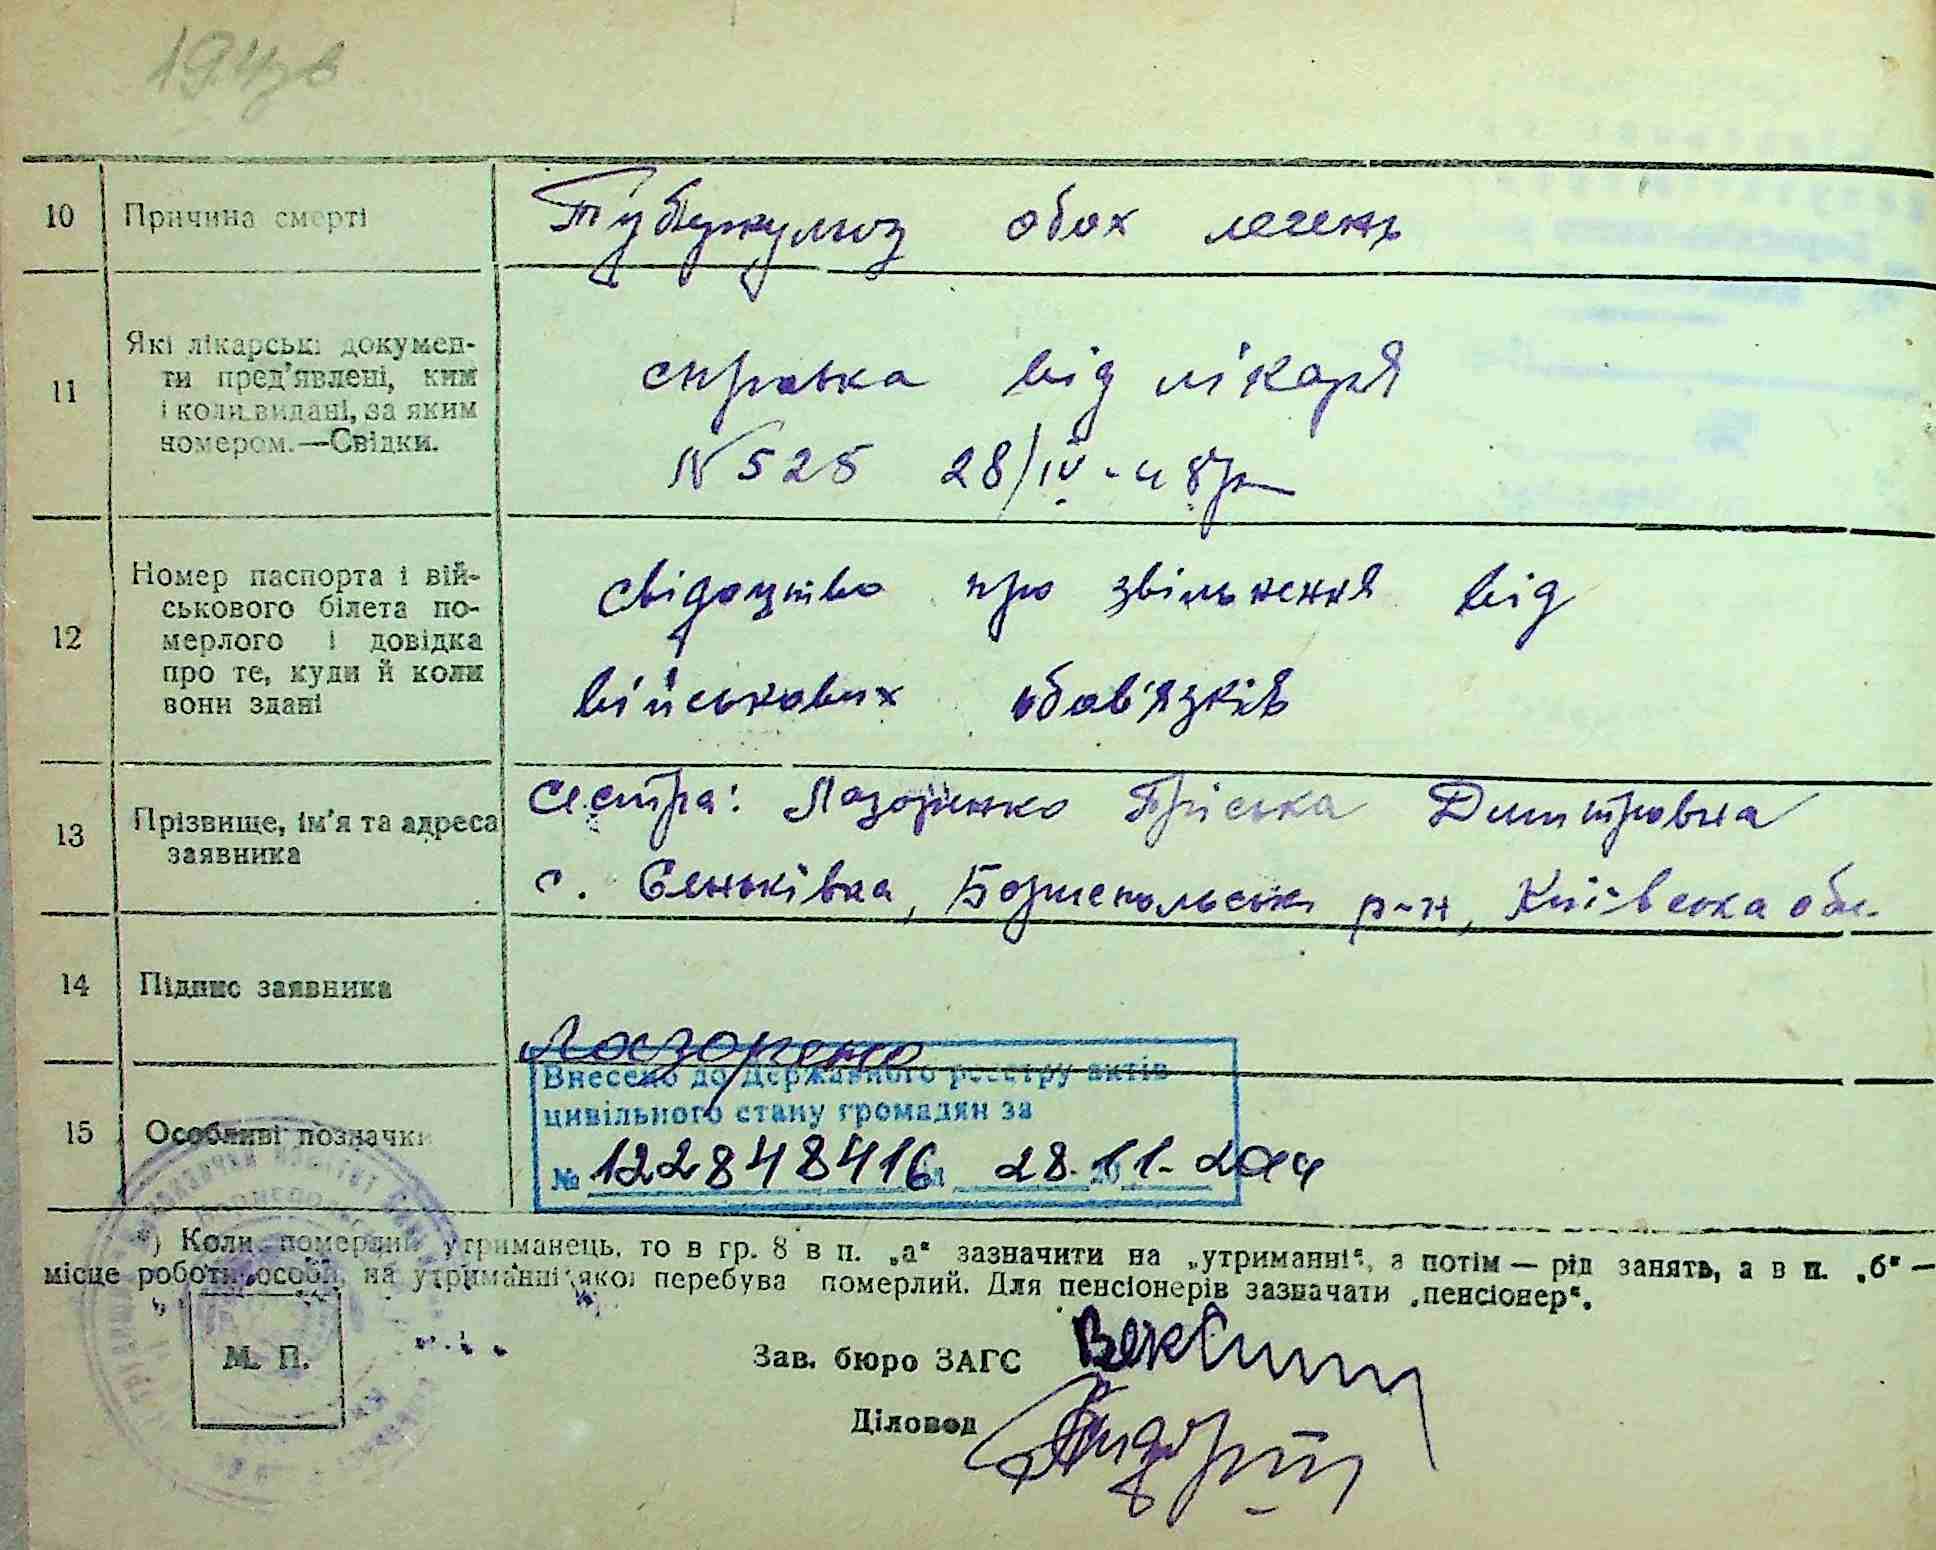 10 Причина смерті Туберкульоз обох легень
11 Які лікарські докумен-
ти пред'явлені, ким
і коли видані, за яким
номером.—Свідки.
справка від лікаря
N 525 28/IV - 48р
12 Номер паспорта і вій-
ськового білета по-
мерлого і довідка
про те, куди й коли
вони здані
свідоцтво про звільнення від
військових обов'язків
13 Прізвище, ім'я та адреса
заявника
сестра: Лазоренко Пріська Дмитровна
с. Сеньківка, Бориспольськ р-н, Київська обл.
14 Підпис заявника
Лазоренко
15 Особливі позначки
Внесено до Державного реєстру актів
цивільного стану громадян за
№ 1228848416 від 28.11.2014
*) Коли померлий утриманець, то в гр. 8 в п. „а“ зазначити на „утриманні“, а потім — рід занять, а в п. „б“ —
місце роботи особи, на утриманні якої перебува померлий. Для пенсіонерів зазначати „пенсіонер“.
М. П.
Зав. бюро ЗАГС
Діловод